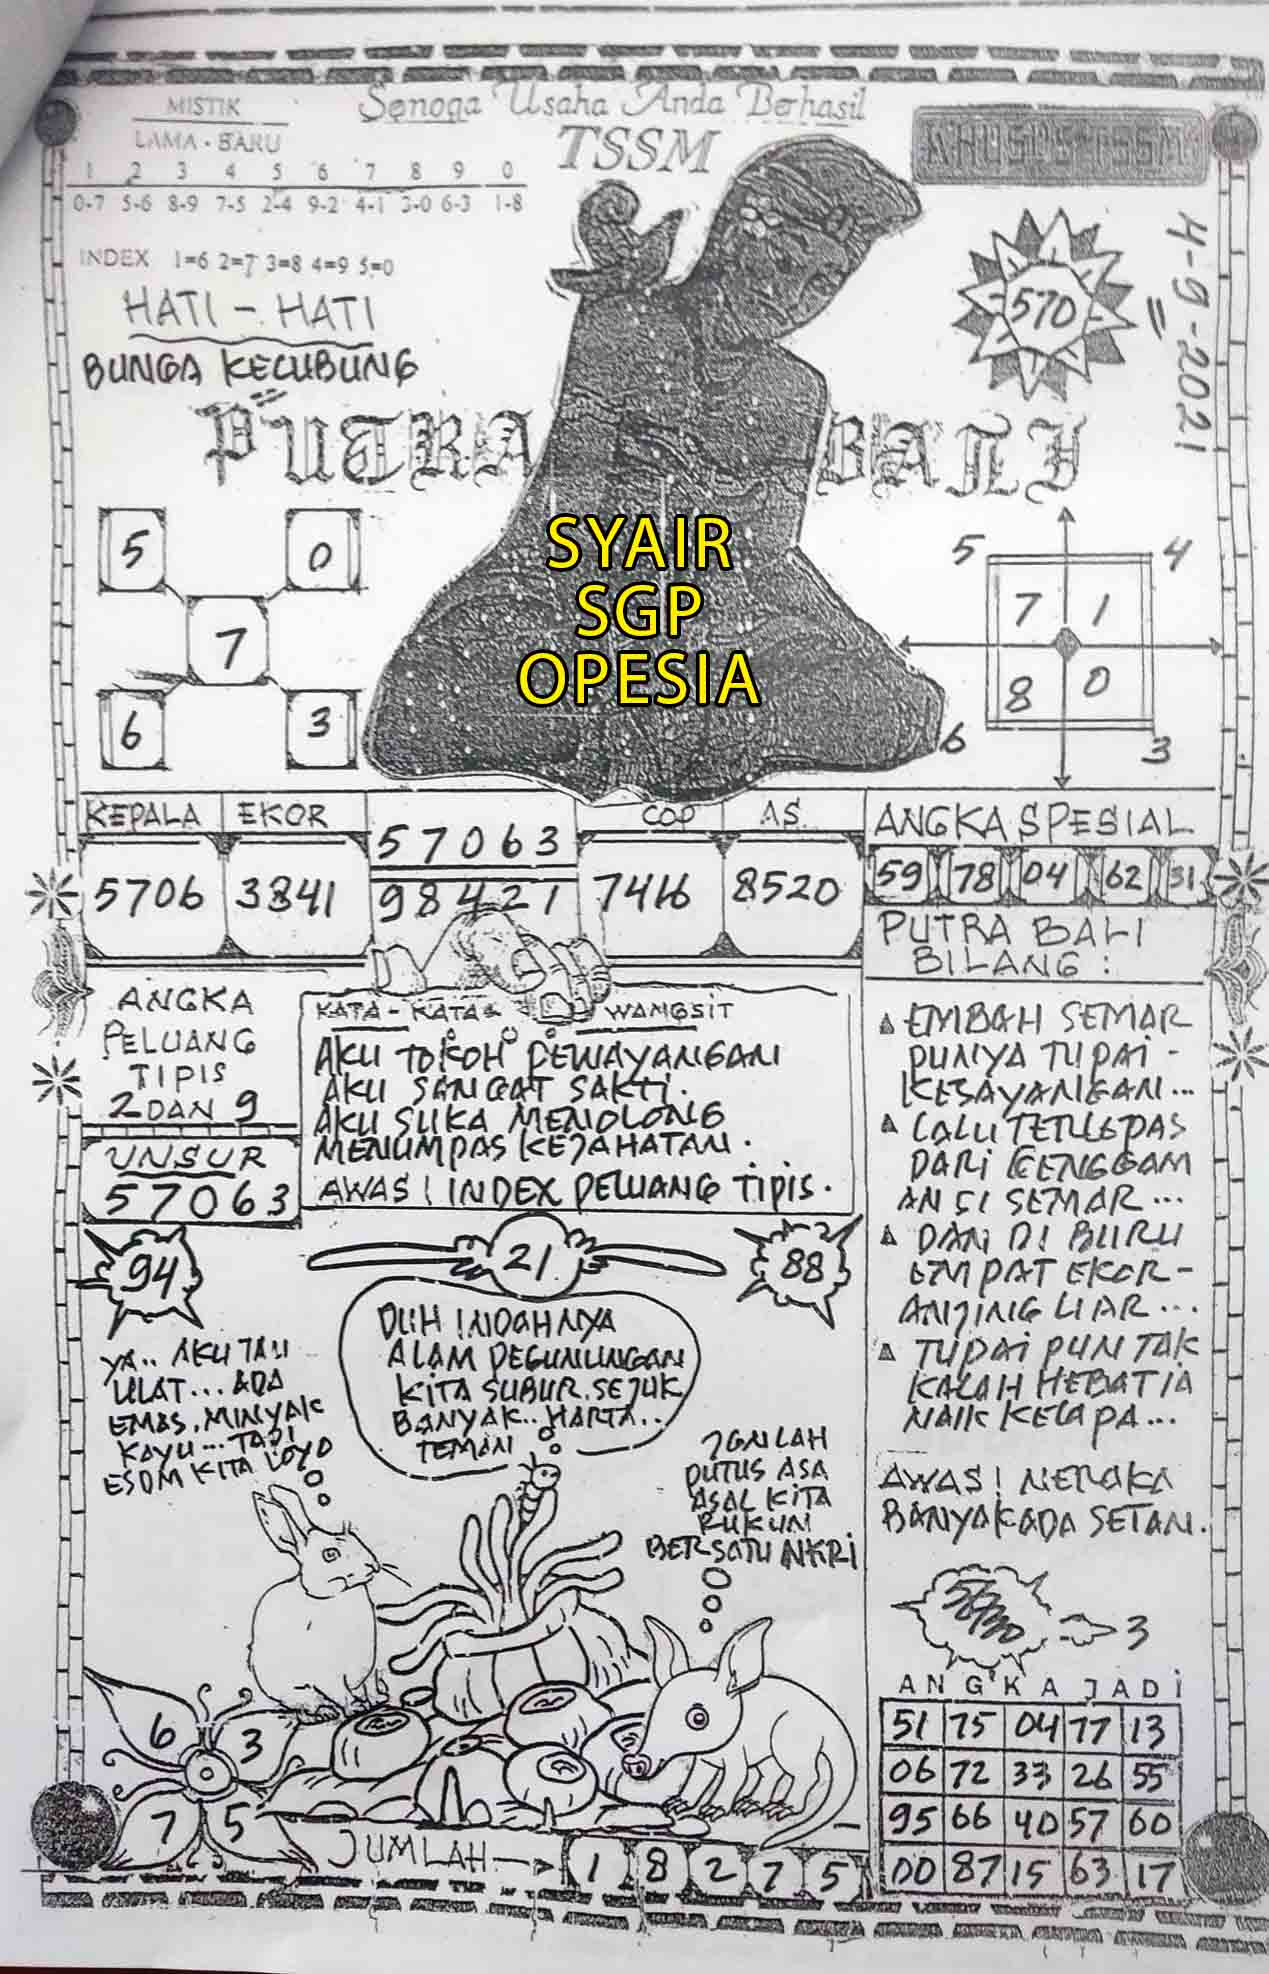 MISTIK
LAMA - BARU
1 2 3 4 5 6 7 8 9 0
0-7 5-6 8-9 7-5 2-4 9-2 4-1 3-0 6-3 1-8
INDEX 1=6 2=7 3=8 4=9 5=0
Semoga Usaha Anda Berhasil
TSSM
4-9-2021
570
HATI - HATI
BUNGA KECUBUNG
PUTRA BALI
SYAIR
SGP
OPESIA
5 0
7
6 3
5 4
7 1
8 0
6 3
KEPALA EKOR
5706 3841
57063
98421
COP AS
7416 8520
ANGKA SPESIAL
59 78 04 62 31
ANGKA
PELUANG
TIPIS
2 DAN 9
UNSUR
57063
KATA - KATA WANGSIT
AKU TOKOH PEWAYANGAN
AKU SANGAT SAKTI.
AKU SUKA MENOLONG
MENUMPAS KEJAHATAN.
AWAS! INDEX PELUANG TIPIS.
PUTRA BALI
BILANG:
EMBAH SEMAR
PUNYA TUPAI -
KESAYANGAN...
LALU TERLEPAS
DARI GENGGAM
AN SI SEMAR...
DAN DI BURU
EMPAT EKOR -
ANJING LIAR...
TUPAI PUN TAK
KALAH HEBAT IA
NAIK KELAPA...
AWAS! NERAKA
BANYAK ADA SETAN.
94
21
88
YA.. AKU TAU
ULAT... ADA
EMAS, MINYAK
KAYU... TAPI
ESDM KITA LOYO
DUH INDAHNYA
ALAM PEGUNUNGAN
KITA SUBUR, SEJUK
BANYAK.. HARTA..
TEMAN
JGNLAH
PUTUS ASA
ASAL KITA
RUKUN
BERSATU NKRI
3
6 3
7 5
JUMLAH
1 8 2 7 5
ANGKA JADI
51 75 04 77 13
06 72 33 26 55
95 66 40 57 60
00 87 15 63 17